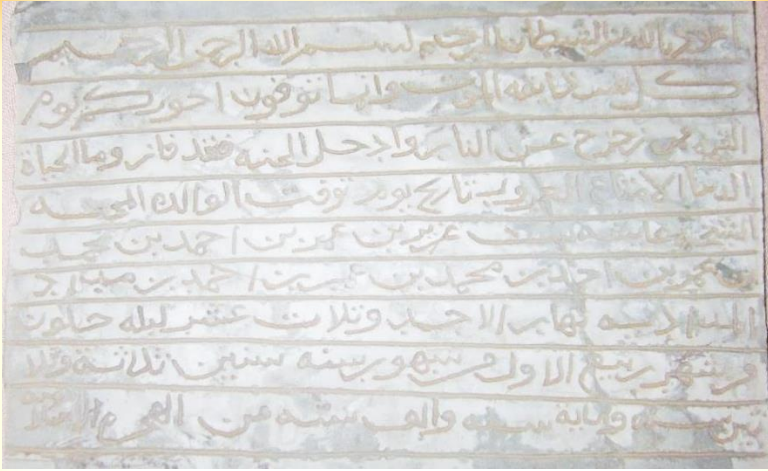 اعوذ بالله من الشيطان الرجيم بسم الله الرحمن الرحيم
كل نفس ذايقه الموت وانما توفون اجوركم يوم
القيمه فمن زحزح عن النار وادخل الجنه فقد فاز وما الحياة
الدنيا الا متاع الغرور بتاريخ يوم توفت الوالده
بنت عزيز بن عمر بن احمد بن محمد
بن عمر بن احمد بن محمد بن بن احمد بن
نهار الاحد وثلاث عشر ليله خلون
من شهر ربيع الاول من شهور سنه سنين ثلاثة وثلا
ثين سنه ومايه سنه والف سنه من الهجره